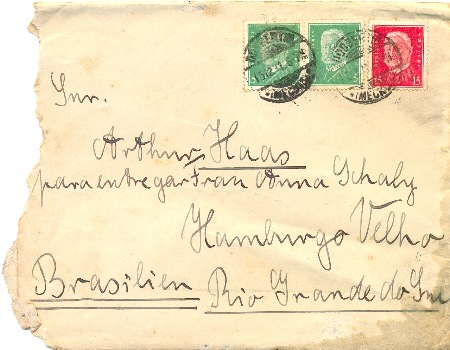 Snr.
Arthur Haas
para entregar Frau Anna Schaly
Hamburgo Velho
Brasilien Rio Grande do Sul
15